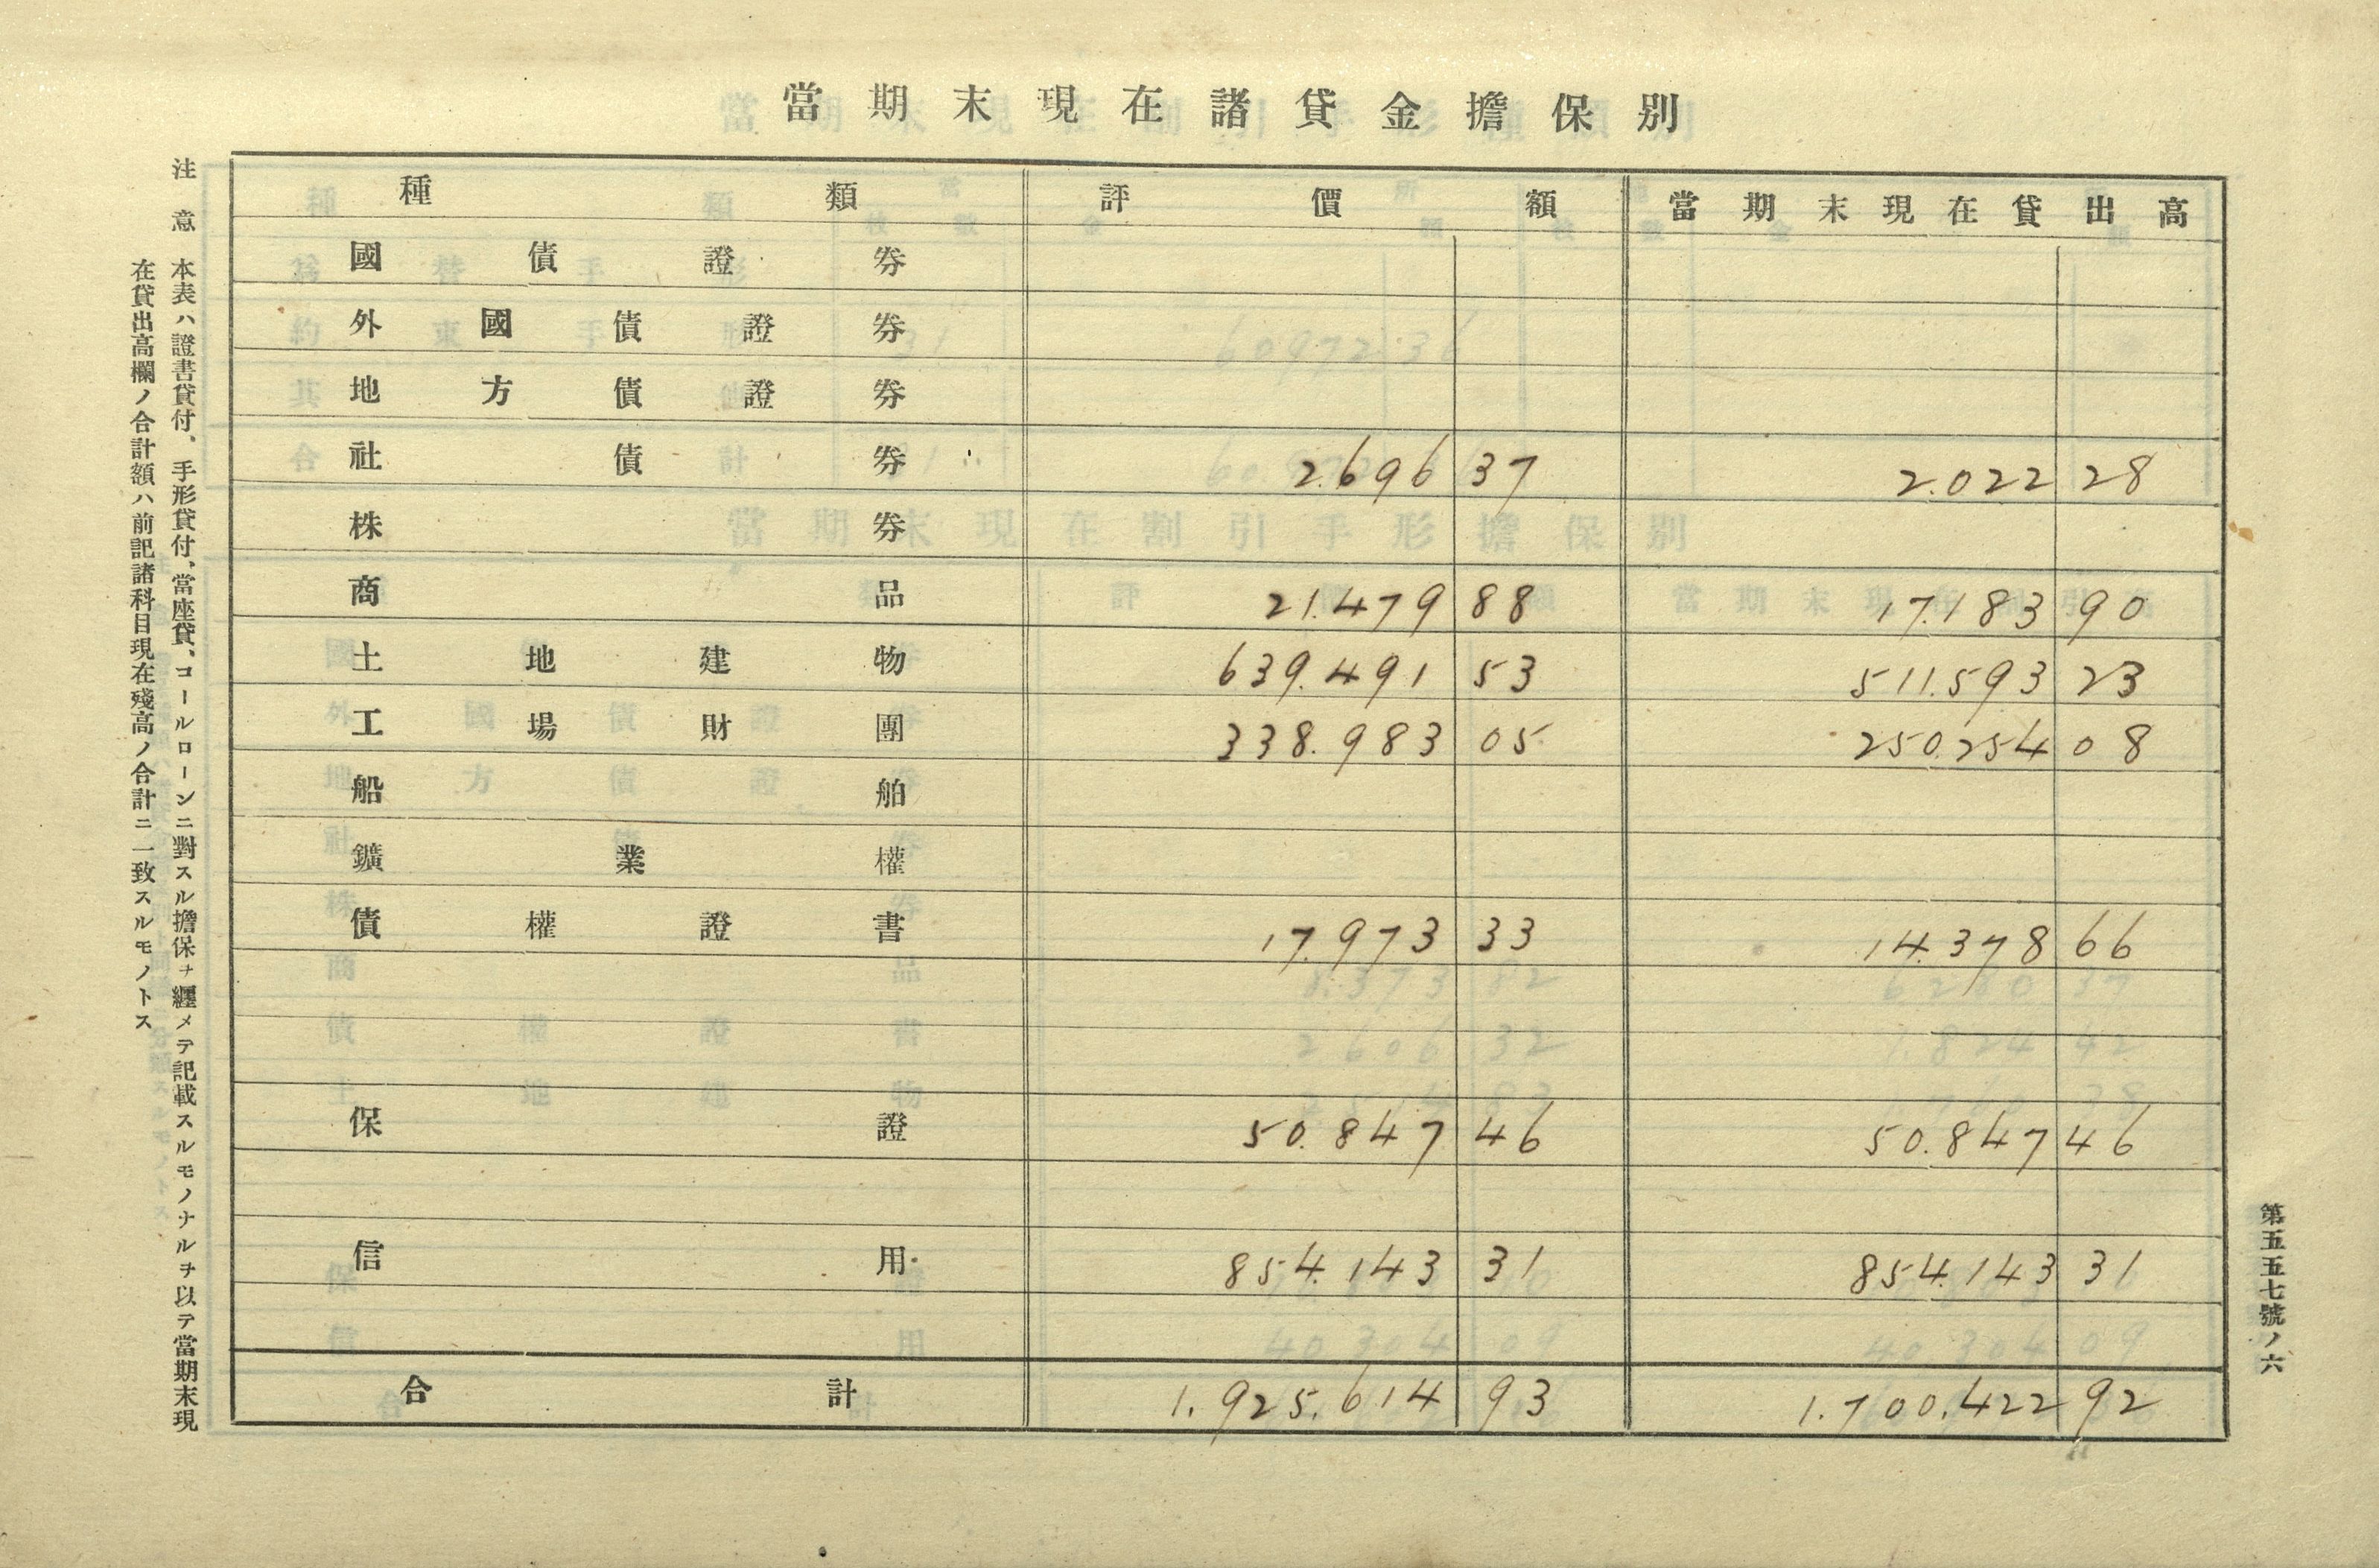 當期末現在諸貸金擔保別
種類 評價額 當期末現在貸出高
國債證券
外國債證券
地方債證券
社債券 2.696 37 2.022 28
株券
商品 21.479 88 17.183 90
土地建物 639.491 53 511.593 23
工場財團 338.983 05 250.254 08
船舶
鑛業權
債權證書 17.973 33 14.378 66
保證 50.847 46 50.847 46
信用 854.143 31 854.143 31
合計 1.925.614 93 1.700.422 92
注意 本表ハ證書貸付、手形貸付、當座貸、コールローンニ對スル擔保ヲ纒メテ記載スルモノナルヲ以テ當期末現
在貸出高欄ノ合計額ハ前記諸科目現在殘高ノ合計ニ一致スルモノトス
第五五七號ノ六